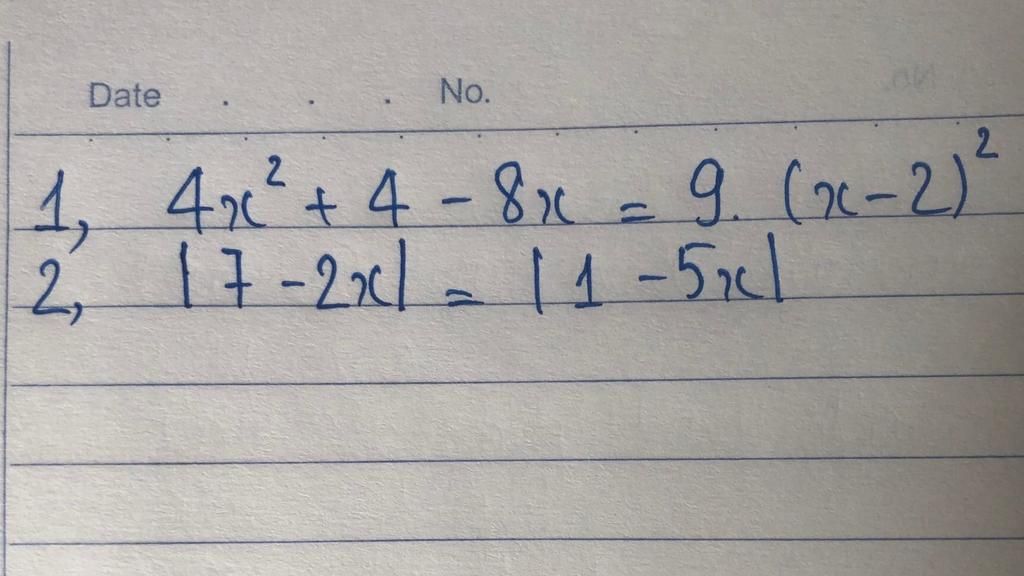 Date . . . No.
1, 4x² + 4 - 8x = 9. (x-2)²
2, |7 -2x| = | 1 -5x|